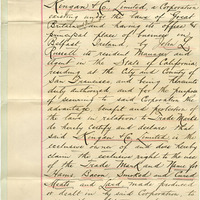 Kingan & Co. Limited, a Corporation
existing under the laws of Great
Britain, and having its office and
principal place of business in
Belfast Ireland, John
Russell its resident Manager and
Agent in the State of California
residing at the City and County of
San Francisco and being thereunto
duly authorized, and for the purpose
of securing to said Corporation the
advantage benefit and protection of
the law in relation to Trade Marks
do hereby certify and declare that
said Kingan & Co. Limited is the
exclusive owner of and does hereby
claim the exclusive right to the use
of the Trade Mark and Name for
Hams, Bacon, Smoked and Cured
Meats, and Lard made produced
or dealt in by said Corporation to